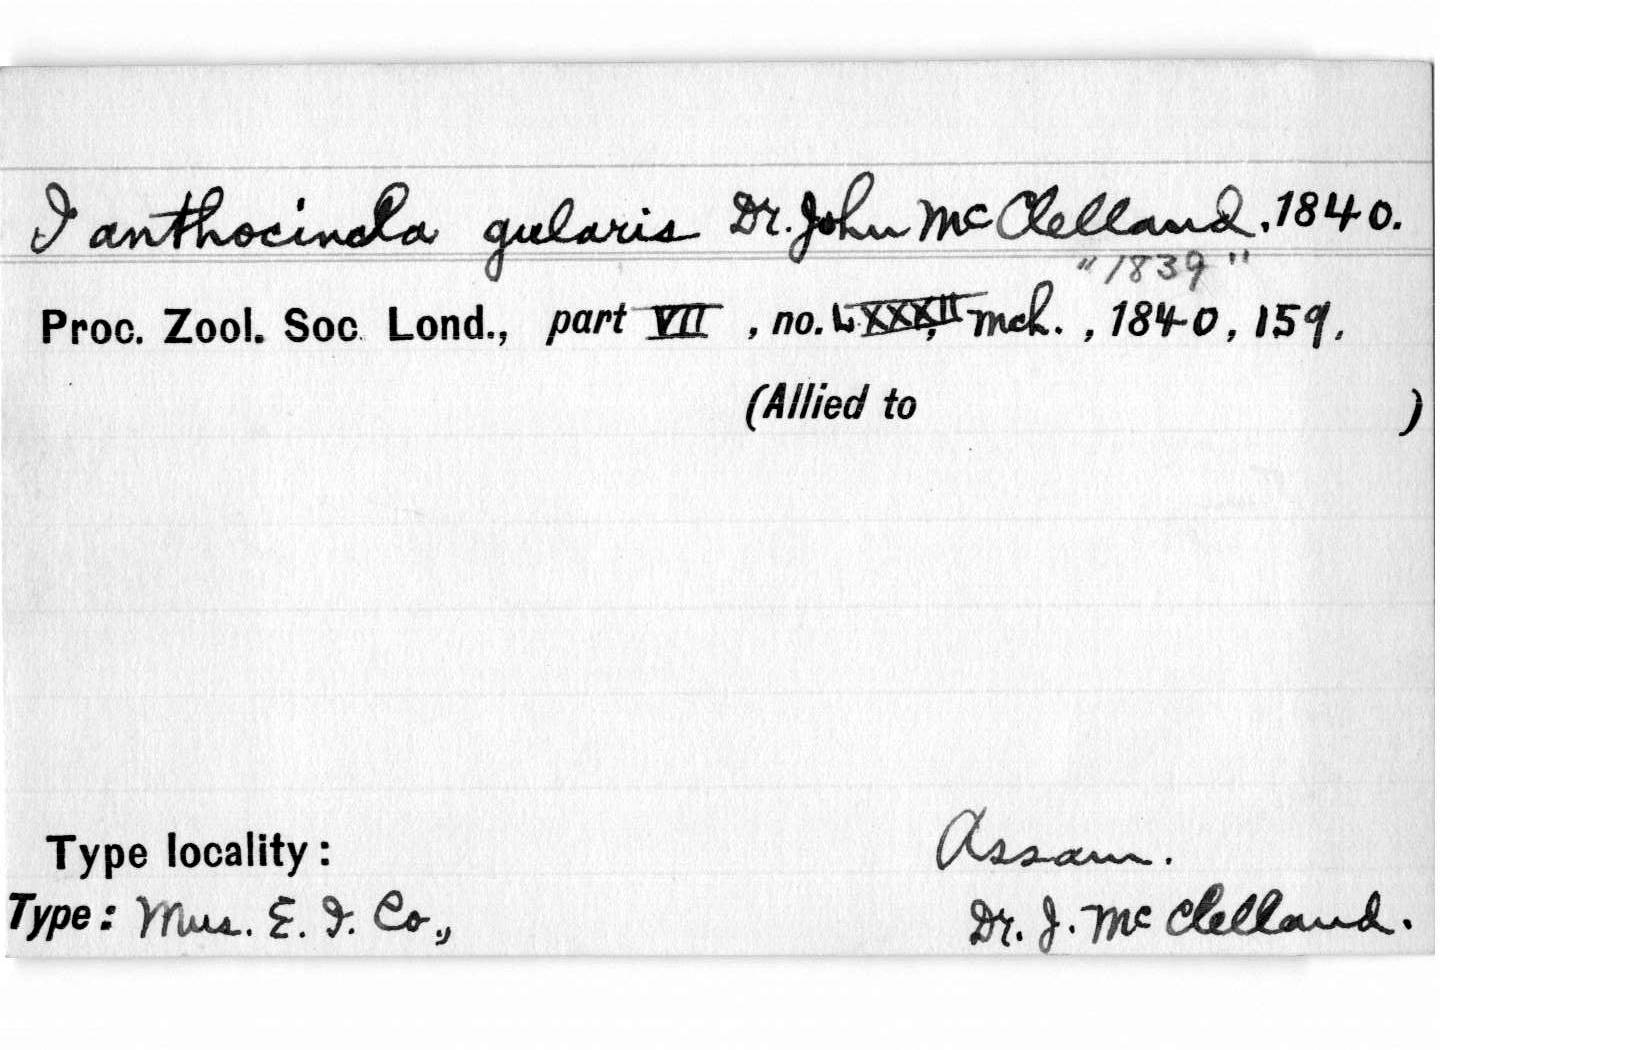 Ianthocincla gularis Dr. John McClelland, 1840.
"1839"
Proc. Zool. Soc. Lond., part VII, no. LXXXII, Mch., 1840, 159.
(Allied to )
Type locality: Assam.
Type: Mus. E. I. Co., Dr. J. McClelland.